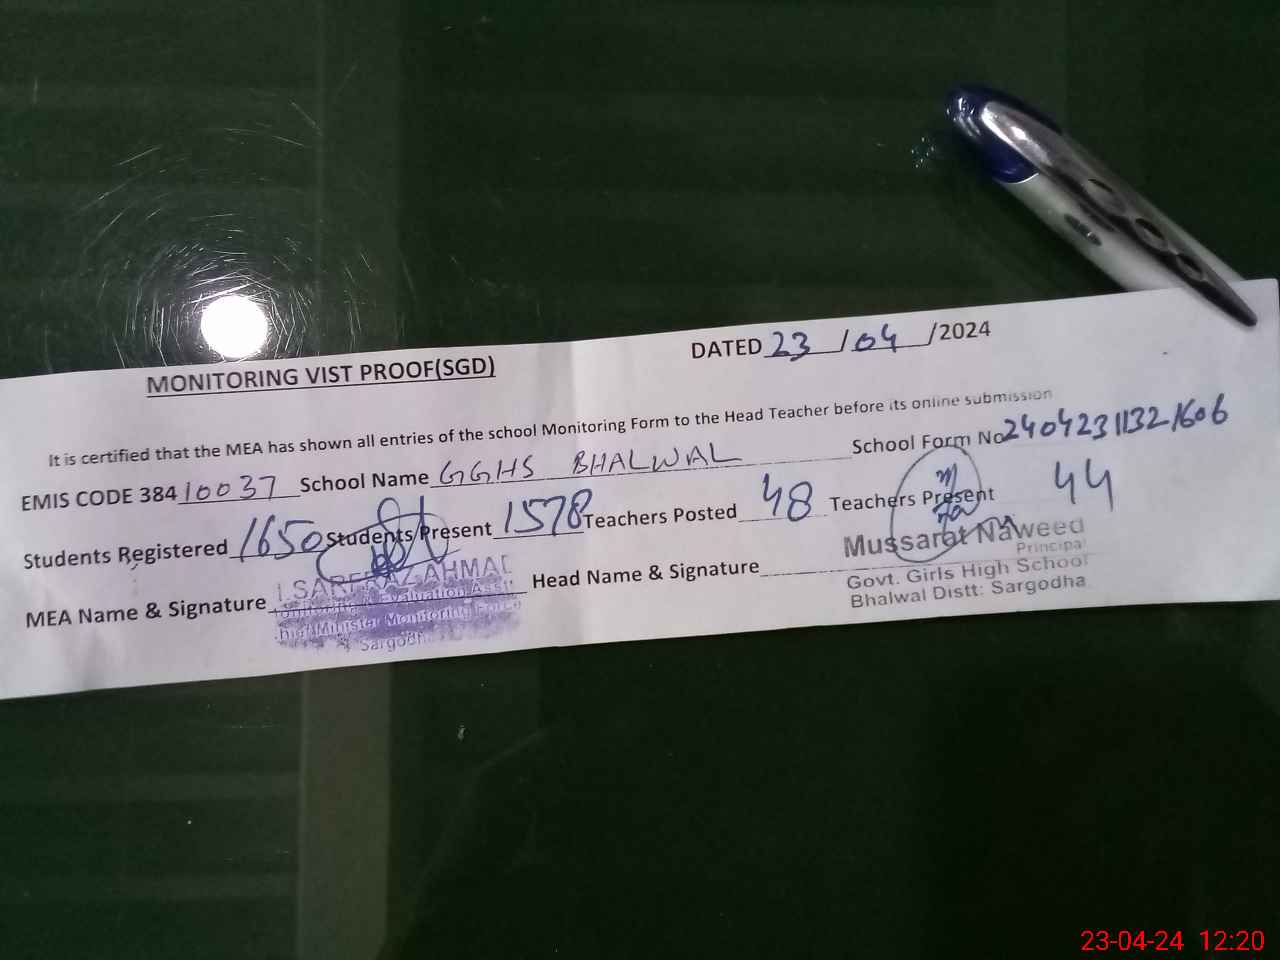 MONITORING VIST PROOF(SGD) DATED 23/04/2024
It is certified that the MEA has shown all entries of the school Monitoring Form to the Head Teacher before its online submission
EMIS CODE 38410037 School Name GGHS BHALWAL School Form No 24042311321606
Students Registered 1650 Students Present 1578 Teachers Posted 48 Teachers Present 44
MEA Name & Signature Head Name & Signature
SARFRAZ AHMAD
Evaluation Asstt
Minister Monitoring Force
Sargodha
Mussarat Naweed
Principal
Govt. Girls High School
Bhalwal Distt: Sargodha
23-04-24 12:20